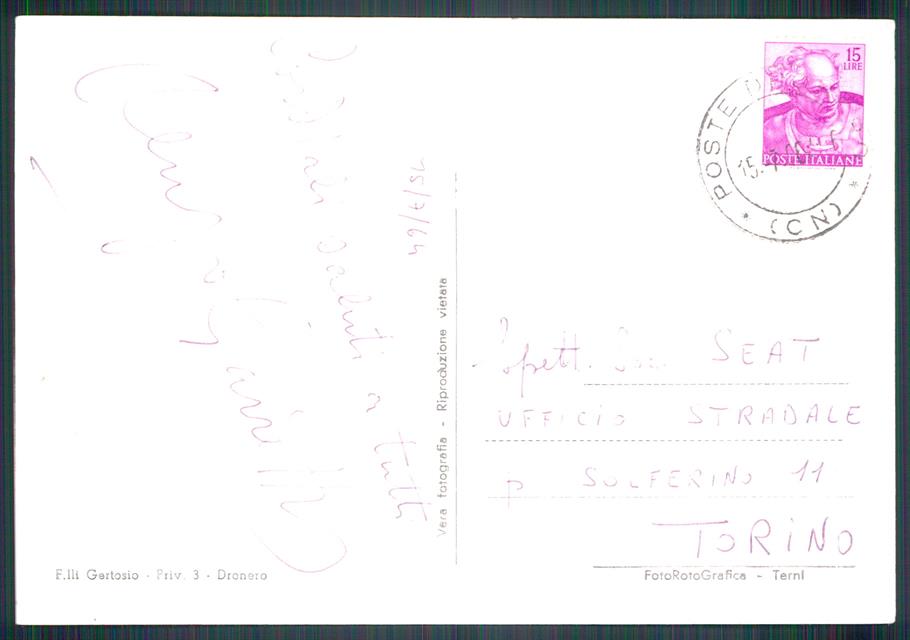 15/7/64
saluti a tutti
Vera fotografia - Riproduzione vietata
F.lli Gertosio - Priv. 3 - Dronero
15 LIRE
POSTE ITALIANE
POSTE
15. 7
(CN)
Spett. Soc. SEAT
UFFICIO STRADALE
p SOLFERINO 11
TORINO
FotoRotoGrafica - Terni